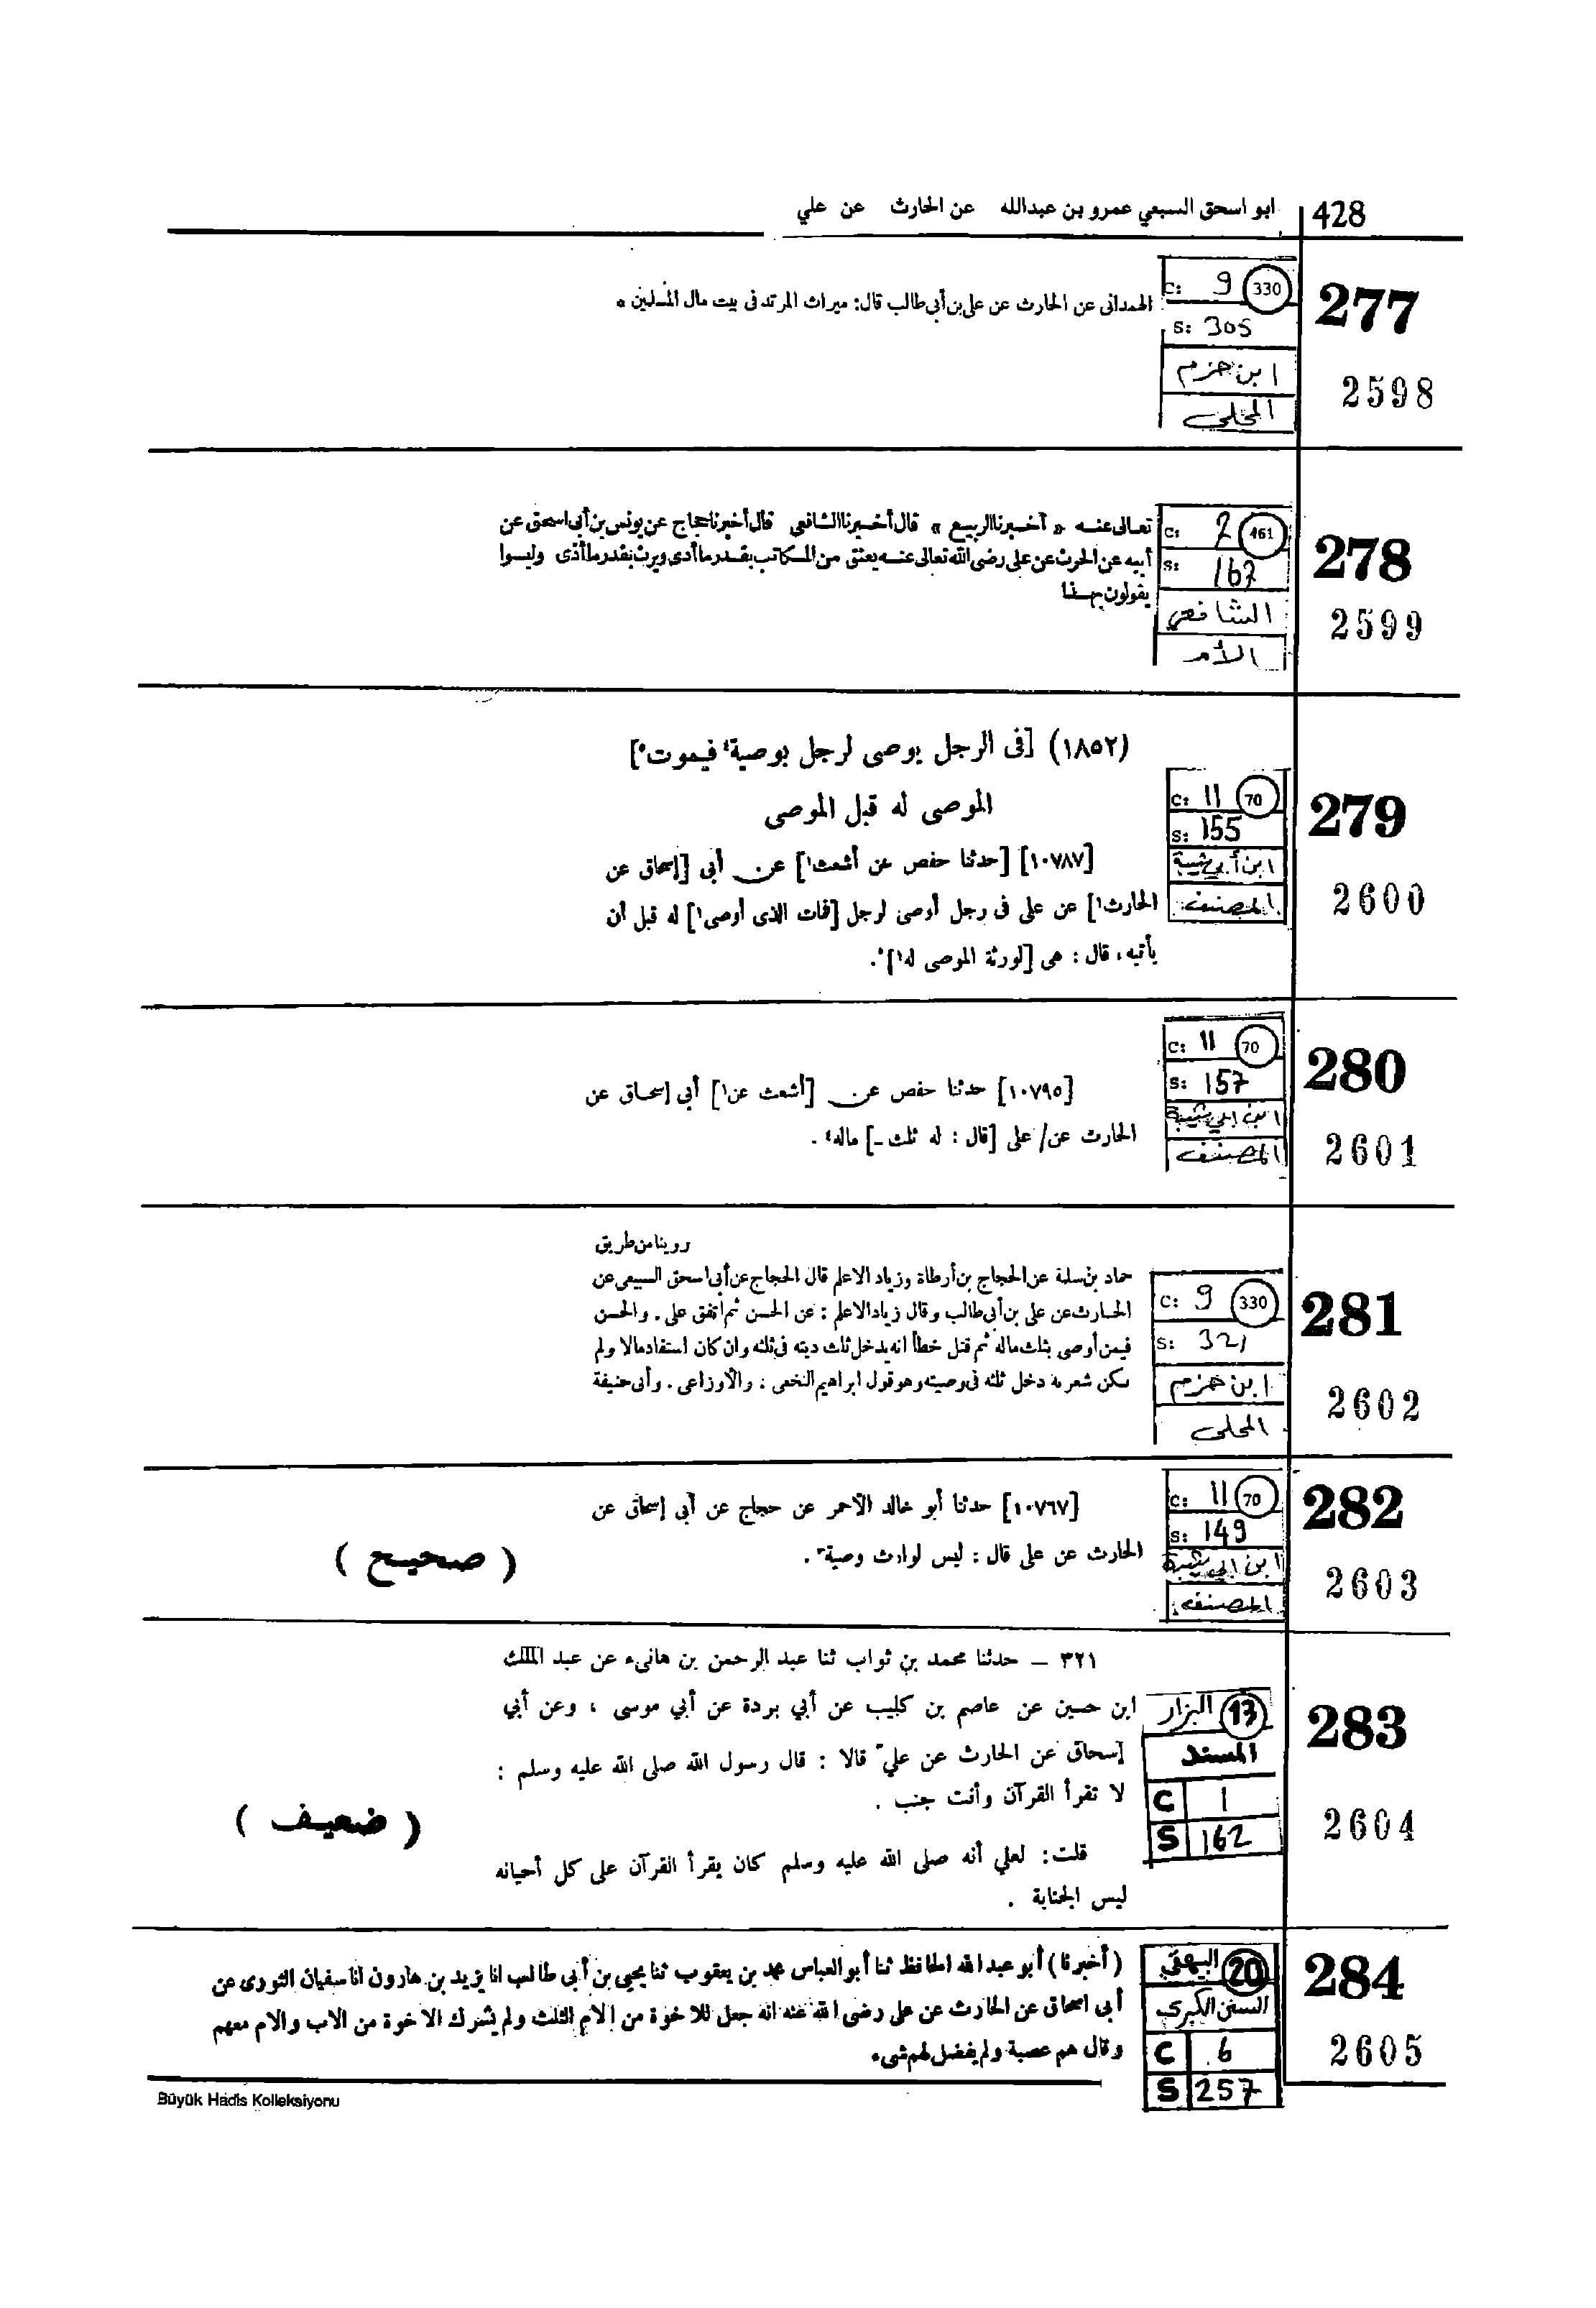 428 ابو اسحق السبعي عمرو بن عبدالله عن الحارث عن علي
277
2598
C: 9 330
S: 305
ابن حزم
المحلى
الهمدانى عن الحارث عن على بن أبى طالب قال: ميراث المرتد فى بيت مال المسلمين .
278
2599
C: 2 461
S: 167
الشافعي
الأم
تعالى عنه « أخبرنا الربيع » قال أخبرنا الشافعى قال أخبرنا حجاج عن يونس بن أبى اسحق عن
أبيه عن الحرث عن على رضى الله تعالى عنه يعتق من المكاتب بقدر ما أدى ويرث بقدر ما أدى وليسوا
يقولون بهذا
279
2600
C: 11 70
S: 155
ابن أبي شيبة
المصنف
(١٨٥٢) [فى الرجل يوصى لرجل بوصية٤ فيموت٥]
الموصى له قبل الموصى
[١٠٧٨٧] [حدثنا حفص عن أشعث١] عن أبى [إسحاق عن
الحارث١] عن على فى رجل أوصى لرجل [فمات الذى أوصى١] له قبل أن
يأتيه، قال : هى [لورثة الموصى له١]٥.
280
2601
C: 11 70
S: 157
ابن ابي شيبة
المصنف
[١٠٧٩٥] حدثنا حفص عن [أشعث عن١] أبى إسحاق عن
الحارث عن/ على [قال : له ثلث ـ] ماله٤ .
281
2602
C: 9 330
S: 321
ابن حزم
المحلى
روينا من طريق
حماد بن سلمة عن الحجاج بن أرطاة وزياد الاعلم قال الحجاج عن أبى اسحق السبيعى عن
الحارث عن على بن أبى طالب وقال زياد الاعلم : عن الحسن ثم اتفق على . والحسن
فيمن أوصى بثلث ماله ثم قتل خطأ انه يدخل ثلث ديته فى ثلثه وان كان استفاد مالا ولم
يكن شعر به دخل ثلثه فى وصيته وهو قول ابراهيم النخعى . والأوزاعى . وأبى حنيفة
282
2603
C: 11 70
S: 149
ابن ابي شيبة
المصنف
[١٠٧٦٧] حدثنا أبو خالد الأحمر عن حجاج عن أبى إسحاق عن
الحارث عن على قال : ليس لوارث وصية٣ .
( صحيح )
283
2604
13 البزار
المسند
C 1
S 162
٣٢١ – حدثنا محمد بن ثواب ثنا عبد الرحمن بن هانىء عن عبد الملك
ابن حسين عن عاصم بن كليب عن أبي بردة عن أبي موسى ، وعن أبي
إسحاق عن الحارث عن علي قالا : قال رسول الله صلى الله عليه وسلم :
لا تقرأ القرآن وأنت جنب .
( ضعيف )
قلت: لعلي أنه صلى الله عليه وسلم كان يقرأ القرآن على كل أحيانه
ليس الجنابة .
284
2605
20 البيهقي
السنن الكبرى
C 6
S 257
( أخبرنا ) أبو عبد الله الحافظ ثنا أبو العباس محمد بن يعقوب ثنا يحيى بن أبى طالب انا يزيد بن هارون انا سفيان الثورى عن
أبى اسحاق عن الحارث عن على رضى الله عنه انه جعل للاخوة من الام الثلث ولم يشرك الاخوة من الاب والام معهم
وقال هم عصبة ولم يفضل لهم شىء
Büyük Hadis Kolleksiyonu